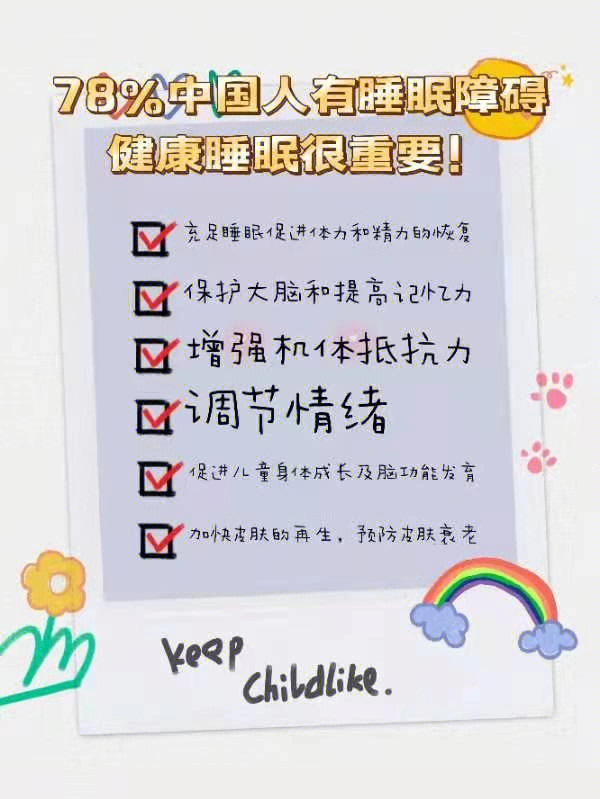 78%中国人有睡眠障碍
健康睡眠很重要！
充足睡眠促进体力和精力的恢复
保护大脑和提高记忆力
增强机体抵抗力
调节情绪
促进儿童身体成长及脑功能发育
加快皮肤的再生，预防皮肤衰老
keep
Childlike.